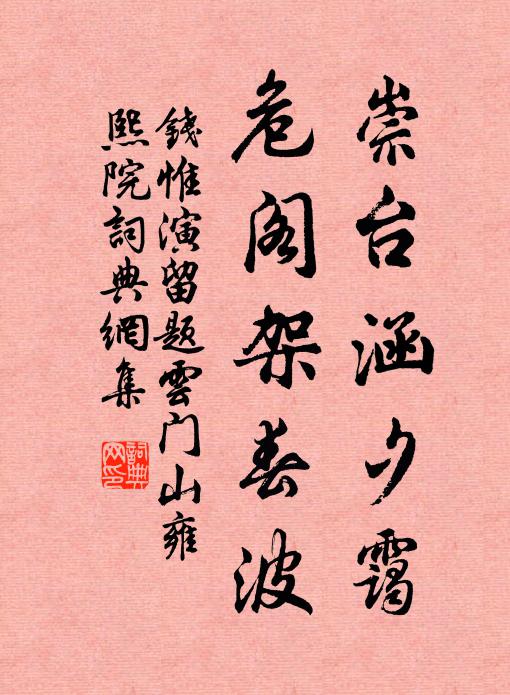 崇台涵夕霭
危阁架春波
錢惟演留题雲门山雍
熙院詞典網集
詞典網印